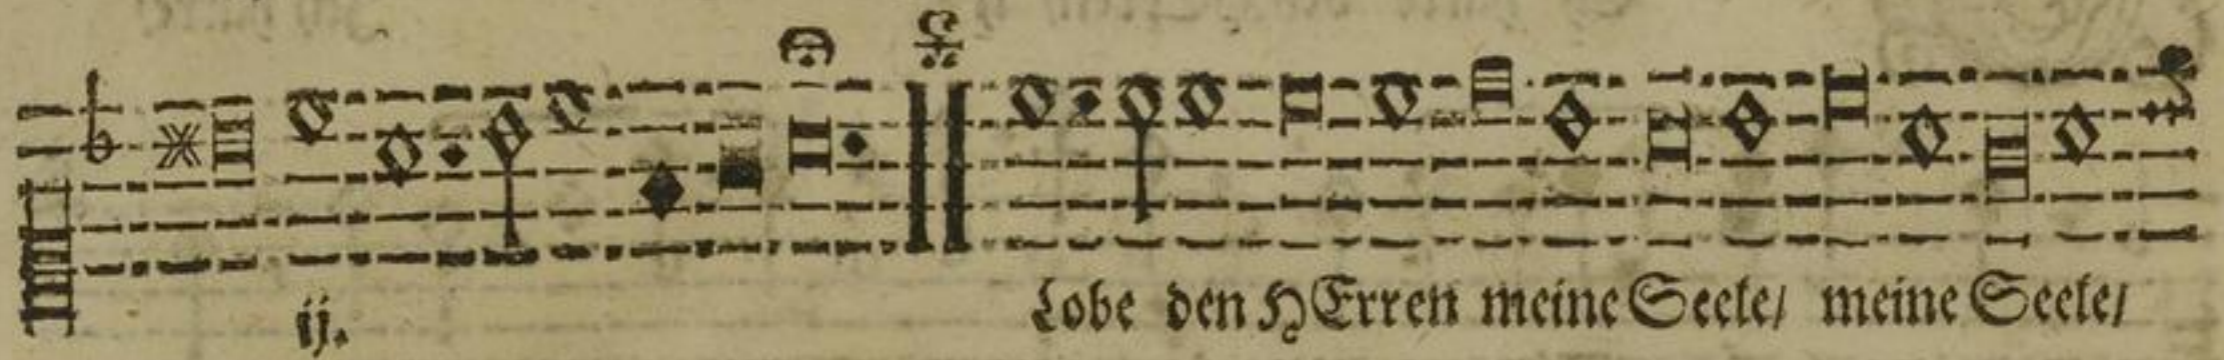 ij. Lobe den HErren meine Seele/ meine Seele/